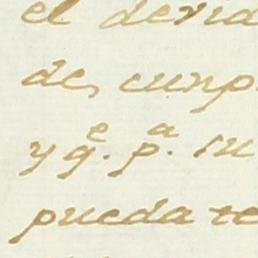 el devia
de, cunp
y q.e p.a su
pueda te